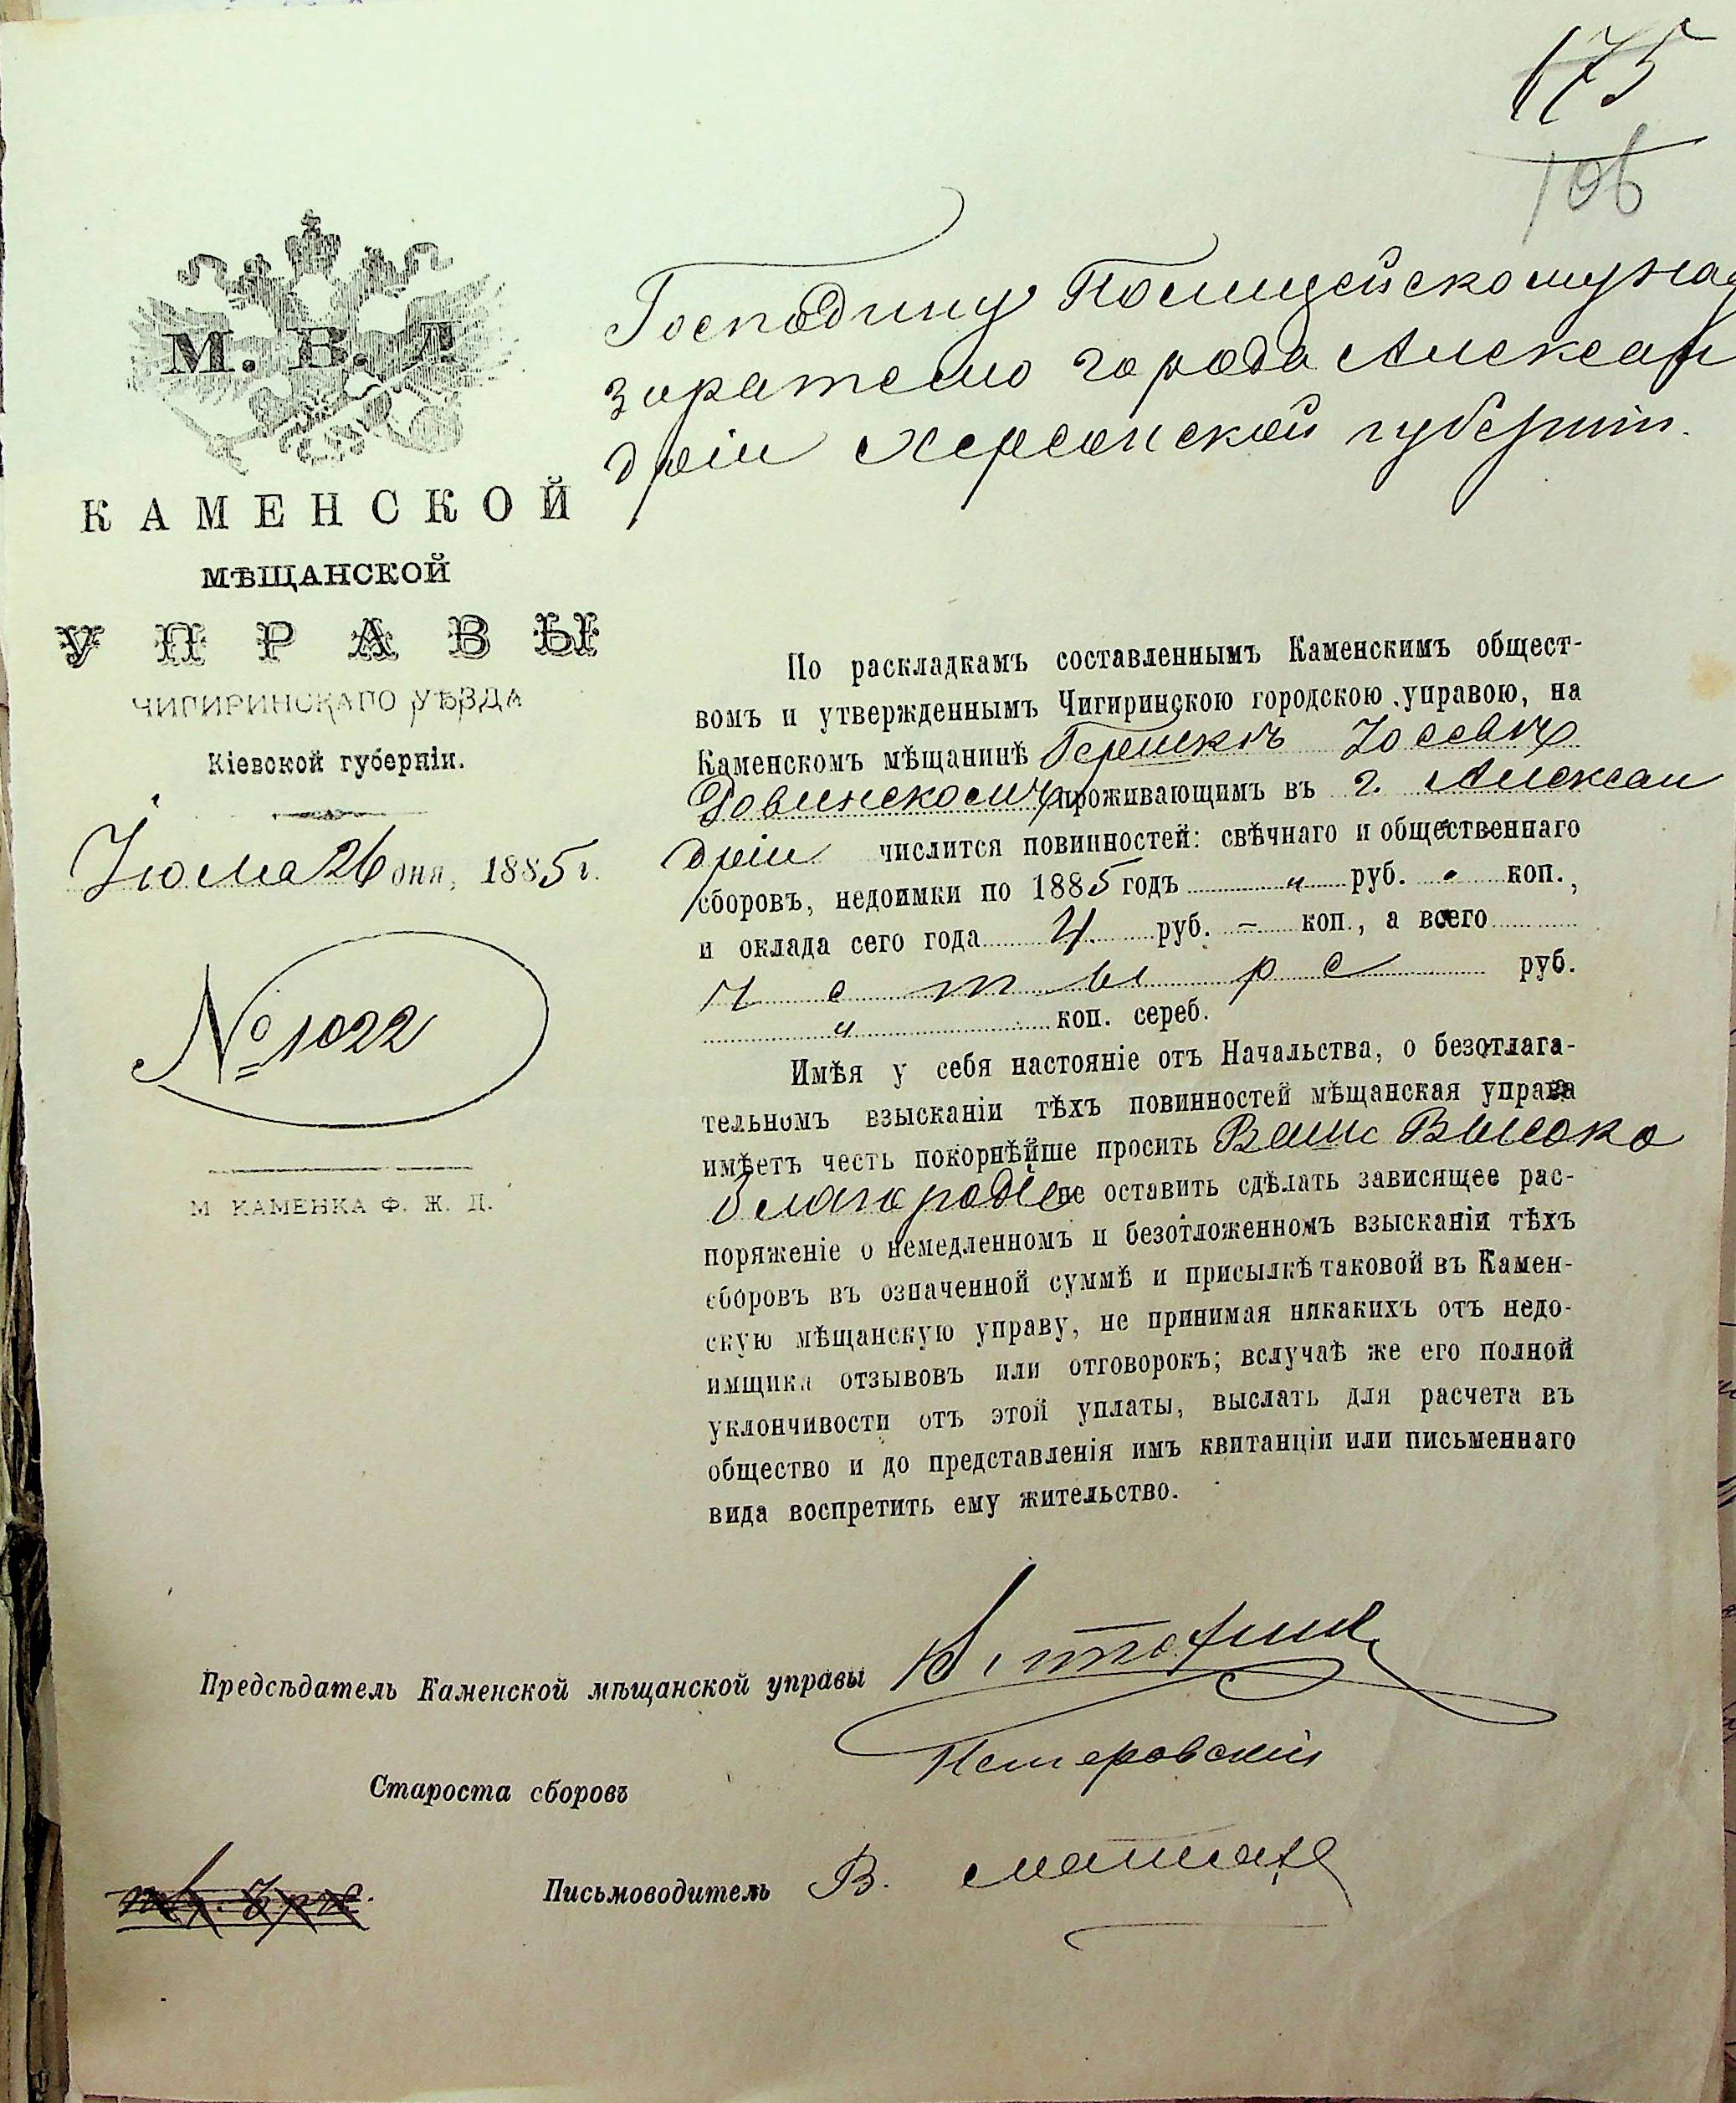 175
106
М. В. Д
КАМЕНСКОЙ
МѢЩАНСКОЙ
УПРАВЫ
ЧИГИРИНСКАГО УѢЗДА
Кіевской губерніи.
Іюля 26 дня, 1885 г.
№ 1022
М КАМЕНКА Ф. Ж. Д.
Господину Полицейскому над
зирателю города Алексан
дріи Херсонской губерніи.
По раскладкамъ составленнымъ Каменскимъ общест-
вомъ и утвержденнымъ Чигиринскою городскою управою, на
Каменскомъ мѣщанинѣ Гершкѣ
проживающимъ въ г. Алексан
дріи числится повинностей: свѣчнаго и общественнаго
сборовъ, недоимки по 1885 годъ " руб. коп.,
и оклада сего года 4 руб. – коп., а всего
четыре руб.
" коп. сереб.
Имѣя у себя настояніе отъ Начальства, о безотлага-
тельномъ взысканіи тѣхъ повинностей мѣщанская управа
имѣетъ честь покорнѣйше просить Ваше Высоко
благородіе не оставить сдѣлать зависящее рас-
поряженіе о немедленномъ и безотложенномъ взысканіи тѣхъ
сборовъ въ означенной суммѣ и присылкѣ таковой въ Камен-
скую мѣщанскую управу, не принимая никакихъ отъ недо-
имщика отзывовъ или отговорокъ; вслучаѣ же его полной
уклончивости отъ этой уплаты, выслать для расчета въ
общество и до представленія имъ квитанціи или письменнаго
вида воспретить ему жительство.
Предсѣдатель Каменской мѣщанской управы
Староста сборовъ
Письмоводитель В.